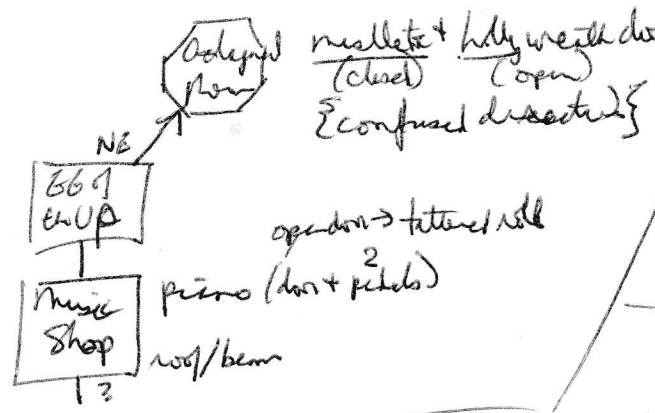 Octagonal mistletoe + holly wreath doo
Room (closed) (open)
{confused directions}
NE
open door → tattered roll
2
piano (door + pedals)
Music
Shop
roof/beam
?